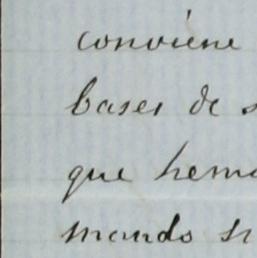 conviene
bases de s
que hemo
mando si